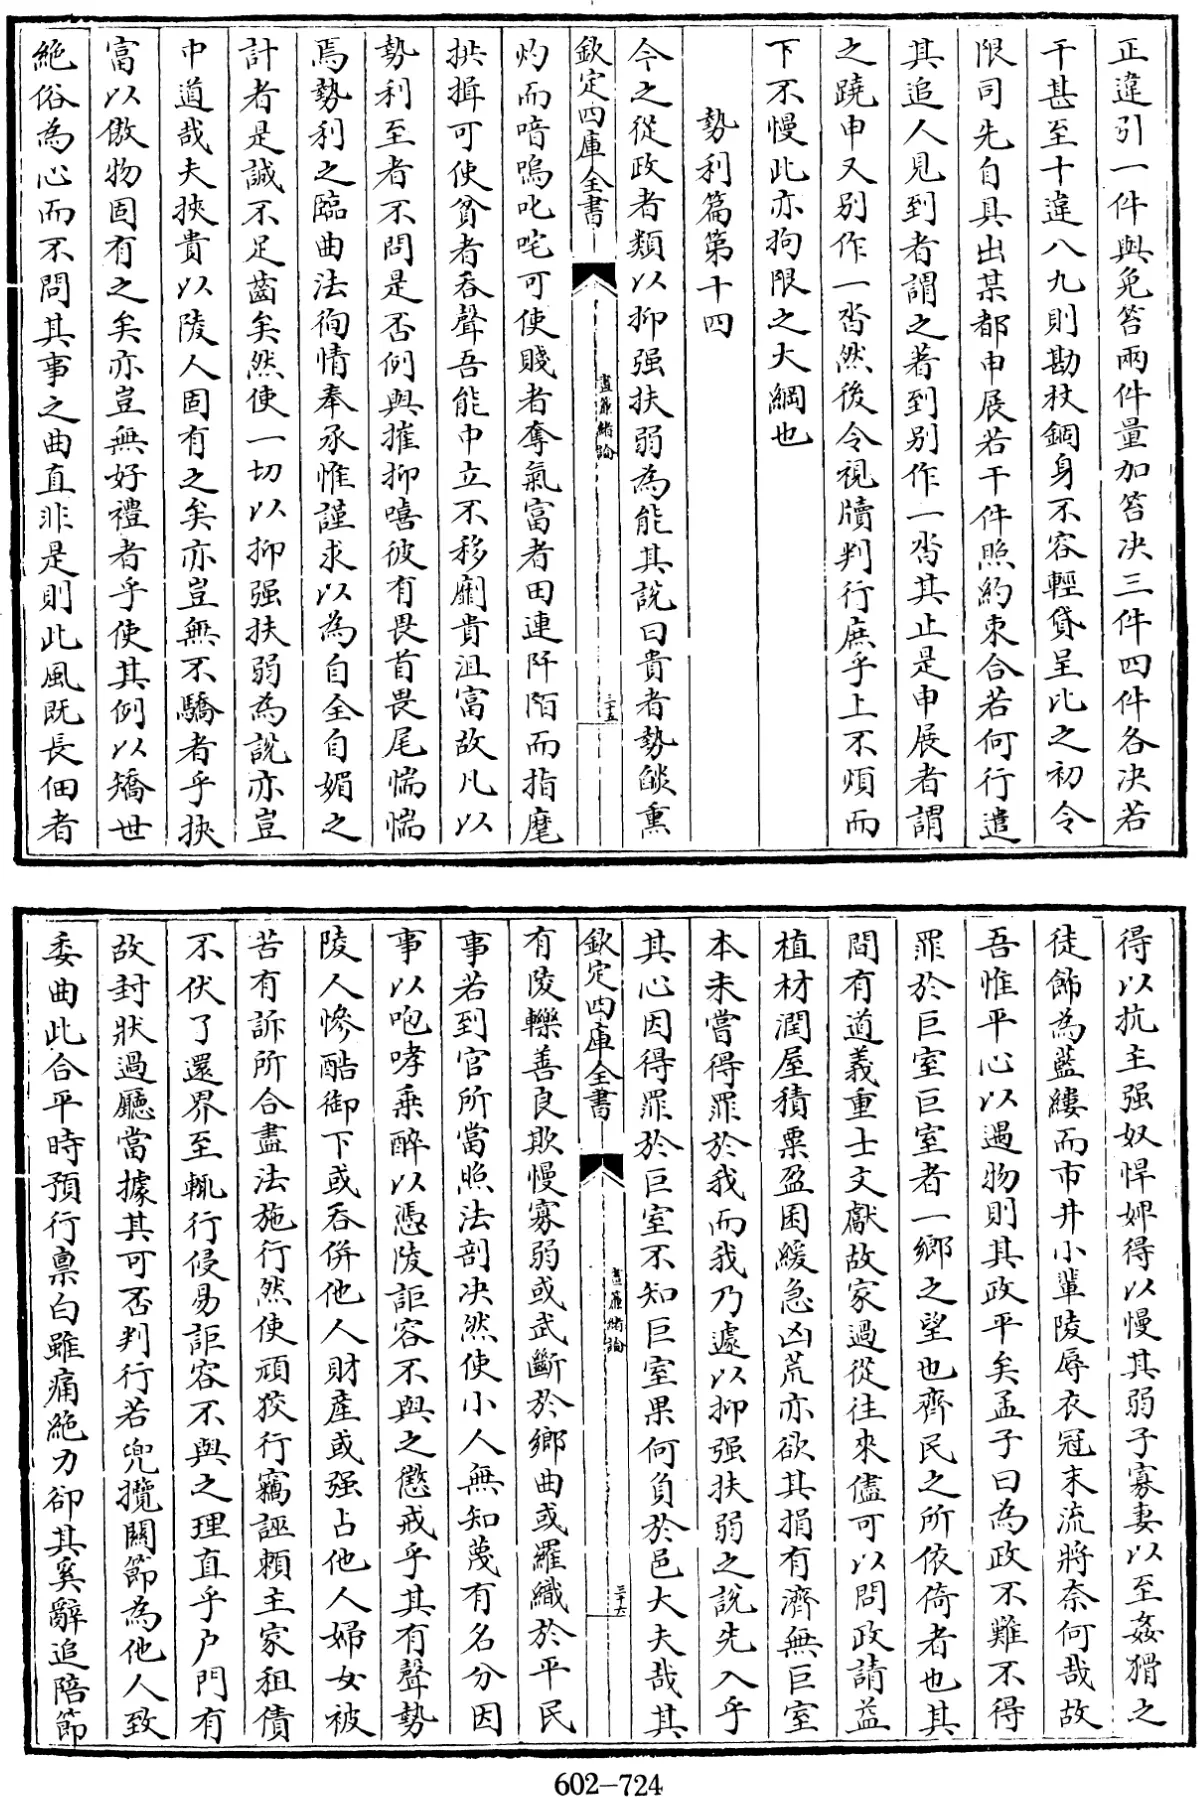 正違引一件與免笞兩件量加笞决三件四件各决若
干甚至十違八九則勘杖錮身不容輕貸呈比之初令
限司先自具出某都申展若干件照約束合若何行遣
其追人見到者謂之著到别作一沓其止是申展者謂
之蹺申又别作一沓然後令視牘判行庶乎上不煩而
下不慢此亦拘限之大綱也
勢利篇第十四
今之從政者類以抑强扶弱為能其說曰貴者勢燄熏
欽定四庫全書
晝簾緒論
三十五
灼而喑嗚叱咤可使賤者奪氣富者田連阡陌而指麾
拱揖可使貧者吞聲吾能中立不移劘貴沮富故凡以
勢利至者不問是否例與摧抑嘻彼有畏首畏尾惴惴
焉勢利之臨曲法徇情奉承惟謹求以為自全自媚之
計者是誠不足齒矣然使一切以抑强扶弱為說亦豈
中道哉夫挾貴以陵人固有之矣亦豈無不驕者乎挾
富以傲物固有之矣亦豈無好禮者乎使其例以矯世
絶俗為心而不問其事之曲直非是則此風既長佃者
得以抗主强奴悍婢得以慢其弱子寡妻以至姦猾之
徒飾為藍縷而市井小輩陵辱衣冠末流將奈何哉故
吾惟平心以遇物則其政平矣孟子曰為政不難不得
罪於巨室巨室者一鄉之望也齊民之所依倚者也其
間有道義重士文獻故家過從往來儘可以問政請益
植材潤屋積粟盈囷緩急凶荒亦欲其捐有濟無巨室
本未嘗得罪於我而我乃遽以抑强扶弱之說先入乎
其心因得罪於巨室不知巨室果何負於邑大夫哉其
欽定四庫全書
晝簾緒論
三十六
有陵轢善良欺慢寡弱或武斷於鄉曲或羅織於平民
事若到官所當照法剖决然使小人無知蔑有名分因
事以咆哮乗醉以憑陵詎容不與之懲戒乎其有聲勢
陵人慘酷御下或吞併他人財產或强占他人婦女被
苦有訴所合盡法施行然使頑狡行竊誣賴主家租債
不伏了還界至輒行侵易詎容不與之理直乎户門有
故封狀過廳當據其可否判行若兜攬關節為他人致
委曲此合平時預行稟白雖痛絶力卻其奚辭追陪節
602-724